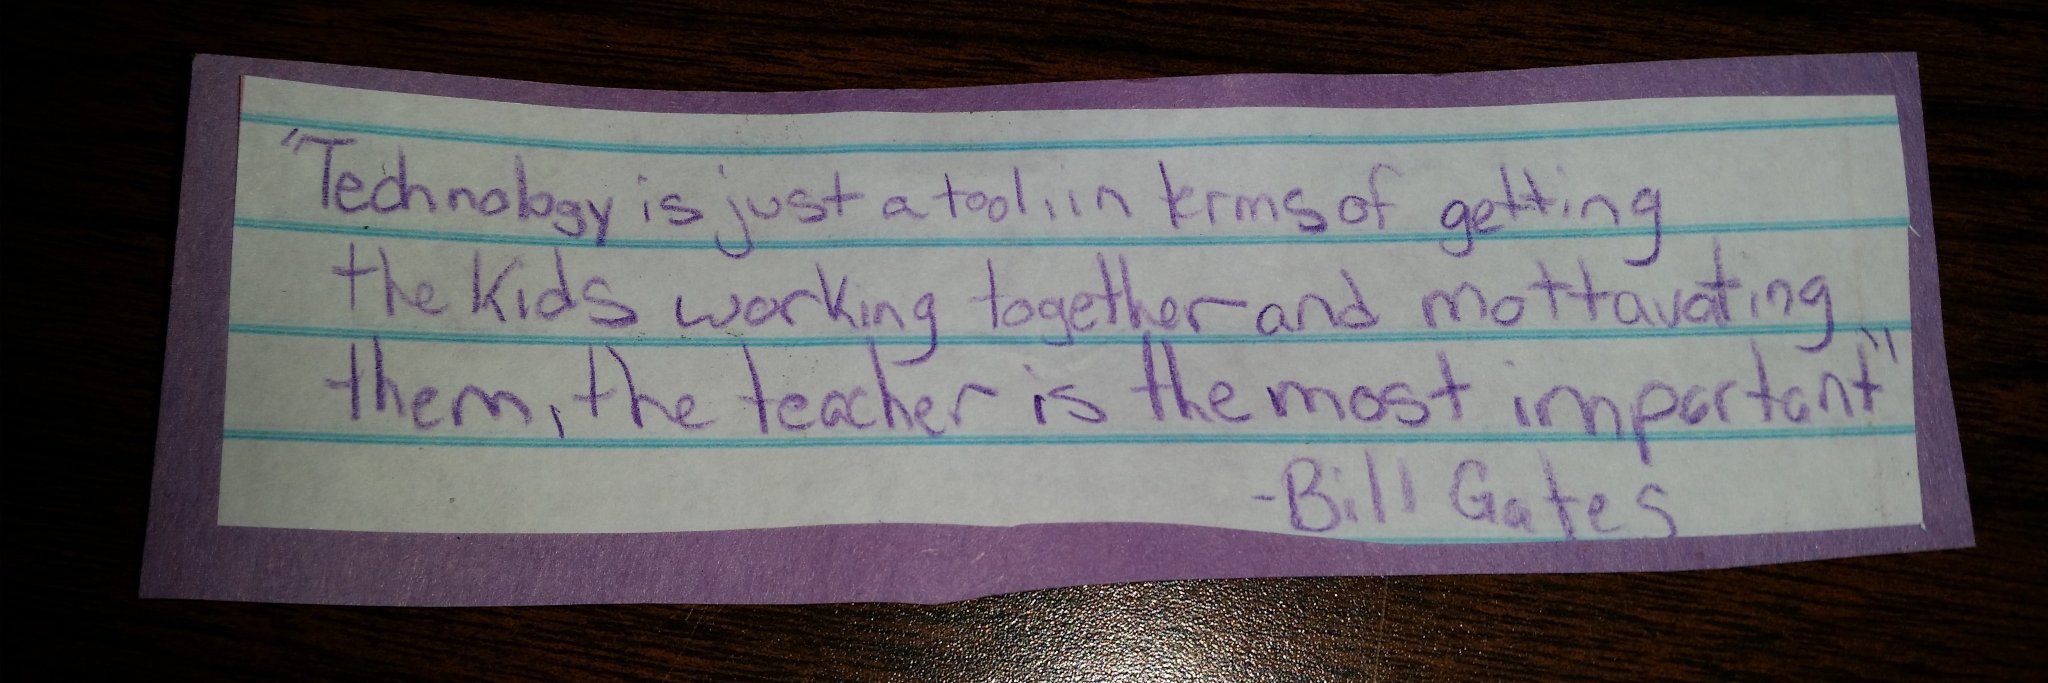 "Technology is just a tool, in terms of getting
the kids working together and mottavating
them, the teacher is the most important"
-Bill Gates